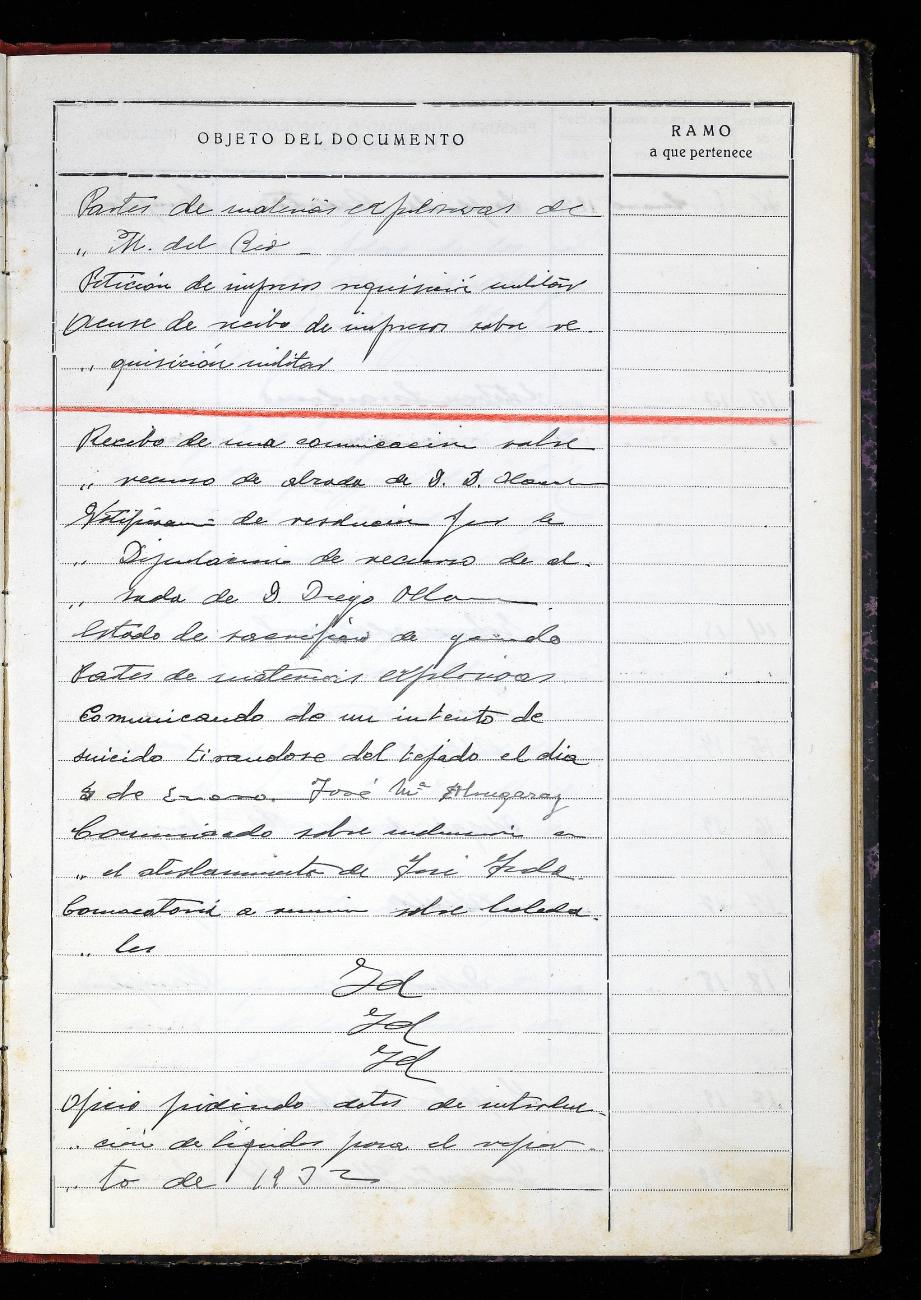 OBJETO DEL DOCUMENTO
RAMO
a que pertenece
Partes de materias explosivas de
„ M. del Rio -
Petición de impresos requisición militar
Acuse de recibo de impresos sobre re-
„ quisición militar
Recibo de una comunicacion sobre
„ recurso de alzada de D. D.
Notificacion de resolucion por la
„ Diputacion de recurso de al-
„ zada de D. Diego
Estado de sacrificio de ganado
Partes de materias explosivas
Comunicando de un intento de
suicido tirandose del tejado el dia
de Enero. José Mª
Comunicado sobre inclusion en
„ el alistamiento de José
Convocatoria a reunion sobre
„ les
Id
Id
Id
Oficio pidiendo datos de introduc-
„ ción de líquidos para el repar-
„ to de 1932